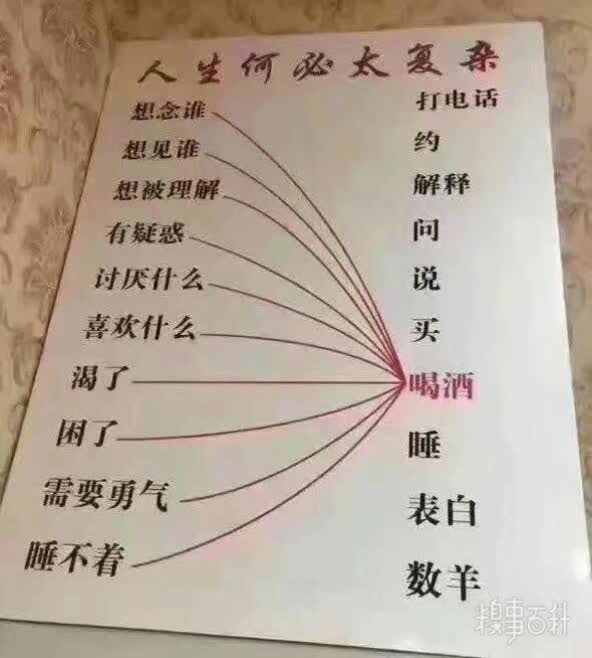 人生何必太复杂
想念谁 打电话
想见谁 约
想被理解 解释
有疑惑 问
讨厌什么 说
喜欢什么 买
渴了 喝酒
困了 睡
需要勇气 表白
睡不着 数羊
糗事百科